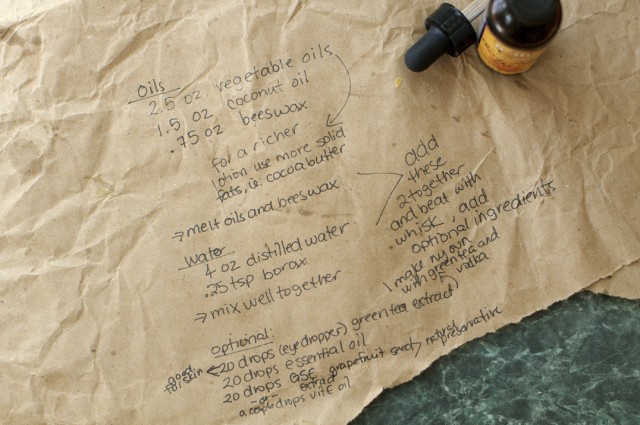 Oils
2.5 oz. vegetable oils
1.5 oz coconut oil
.75 oz beeswax
for a richer
lotion use more solid
fats, ie. cocoa butter
→ melt oils and beeswax
Water
4 oz distilled water
.25 tsp borax
→ mix well together
add
these
2 together
and beat with
whisk, add
optional ingredients
I make my own
with green tea and
vodka
optional:
20 drops (eye dropper) green tea extract)
good for skin
20 drops essential oil
20 drops GSE grapefruit seed extract → natural preservative
-or-
a couple drops vit E oil